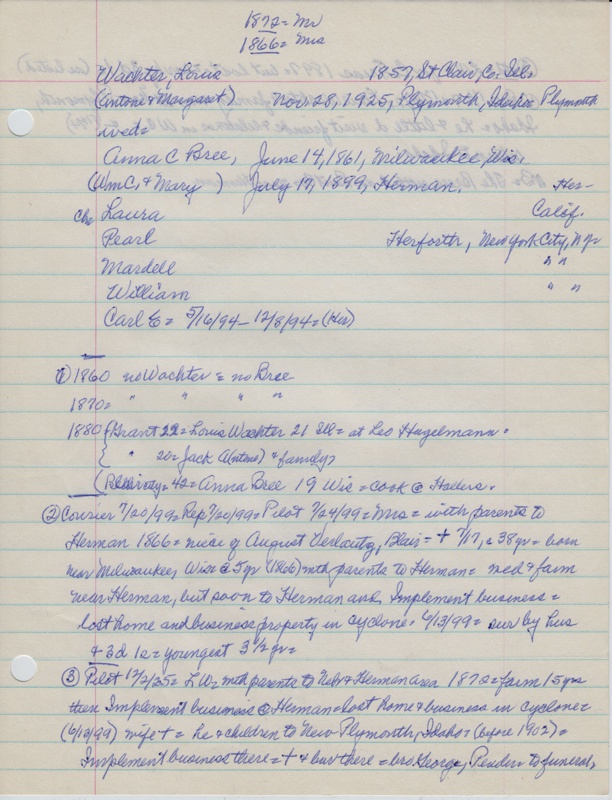 1872 = Mr
1866 = Mrs
Wachter, Louis 1857, St Clair, Co. Ill.
(Antone & Margaret) Nov 28, 1925, Plymouth, Idaho Plymouth
wed =
Anna C Bree, June 14, 1861, Milwaukee, Wis.
(Wm C, & Mary ) July 17, 1899, Herman. Her-
Ch = Laura Calif.
Pearl Herforth, New York City, N.Y.
Mardell " "
William " "
Carl E = 5/16/94 - 12/8/94 = (Her)
① 1860 no Wachter = no Bree
1870 = " " " "
1880 { Grant 22 = Louis Wachter 21 Ill = at Leo Hugelmann.
" 20 = Jack A(ntone) & family
42 = Anna Bree 19 Wis = cook @
② Courier 7/20/99 = Rep 7/20/99 = Pilot 7/24/99 = Mrs = with parents to
Herman 1866 = niece of August , Blair = + 7/17, = 38 yr = born
near Milwaukee, Wis = @ 5 yr (1866) with parents to Herman = wed & farm
near Herman, but soon to Herman and Implement business =
lost home and business property in cyclone. 6/13/99 = sur by hus
+ 3d 1s = youngest 3 1/2 yr =
③ Pilot 12/2/25 = LW = with parents to Nebr & Herman area 1872 = farm 15 yrs
then Implement business @ Herman = lost home & business in cyclone =
(6/13/99) wife + = he & children to New Plymouth, Idaho = (before 1902) =
Implement business there = + & bur there = bro George, Pender to funeral,